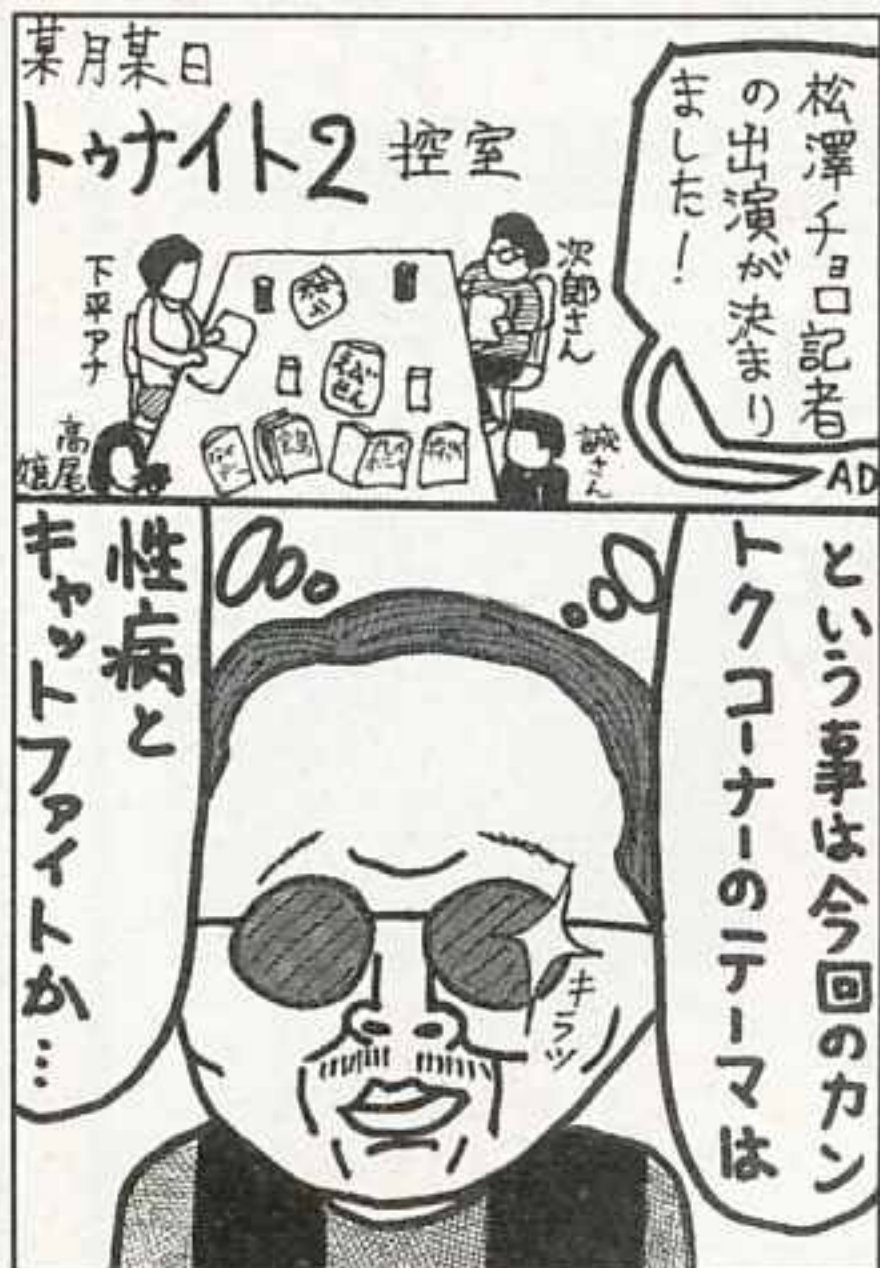 某月某日
トゥナイト2 控室
松澤チョロ記者
の出演が決まり
ました!
AD
次郎さん
下平アナ
誠さん
高尾
嬢
えびせん
という事は今回のカン
トクコーナーのテーマは
キラッ
性病と
キャットファイトか…